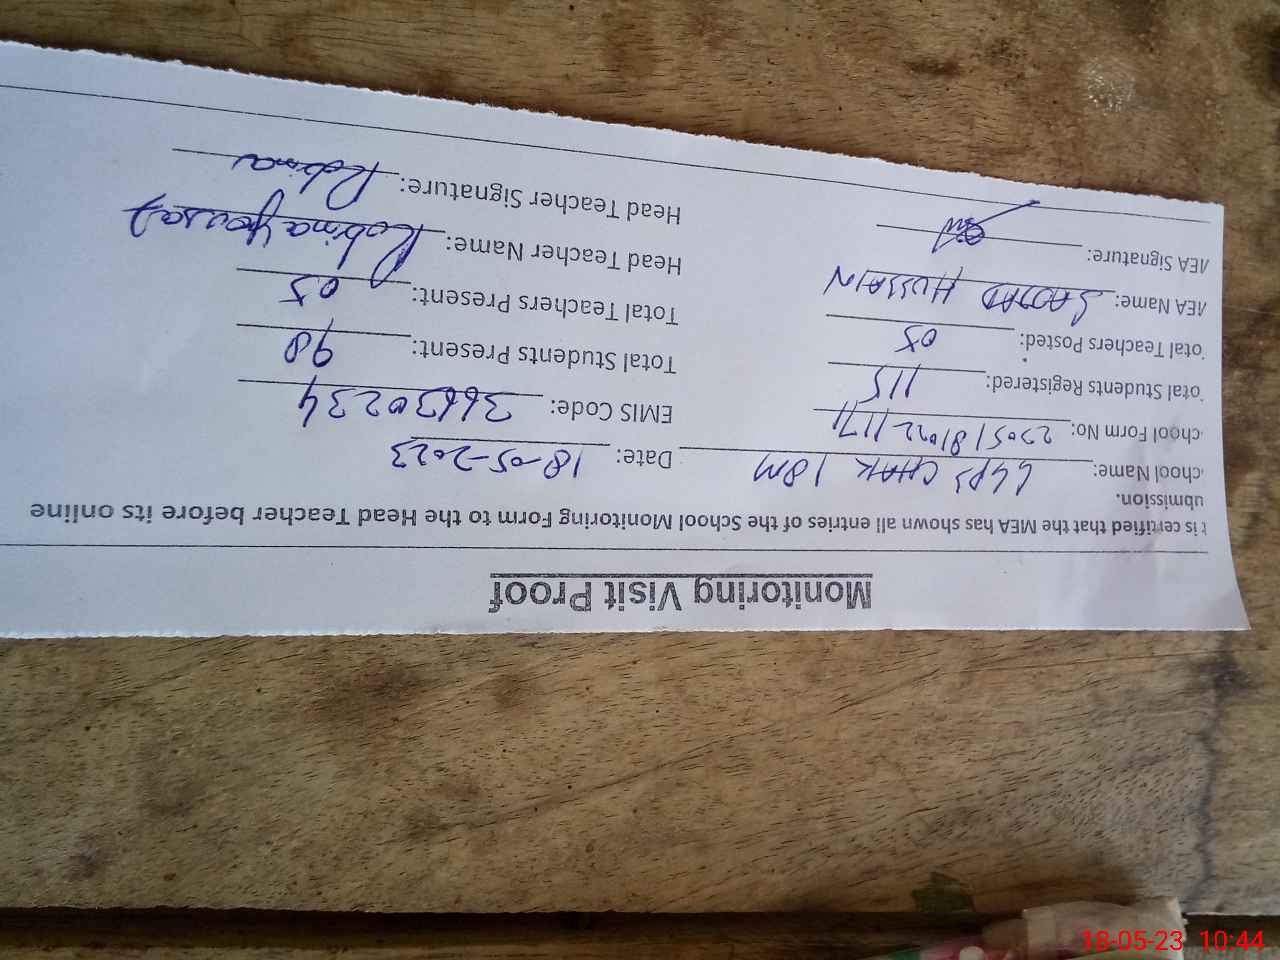 Monitoring Visit Proof
t is certified that the MEA has shown all entries of the School Monitoring Form to the Head Teacher before its online
ubmission.
chool Name: GGPS CHAK 18M Date: 18-05-2023
chool Form No: EMIS Code: 36630234
otal Students Registered: 115 Total Students Present: 98
otal Teachers Posted: 05 Total Teachers Present: 05
MEA Name: SAJJAD HUSSAIN Head Teacher Name: Robina Yousaf
MEA Signature: Head Teacher Signature: Robina
18-05-23 10:44